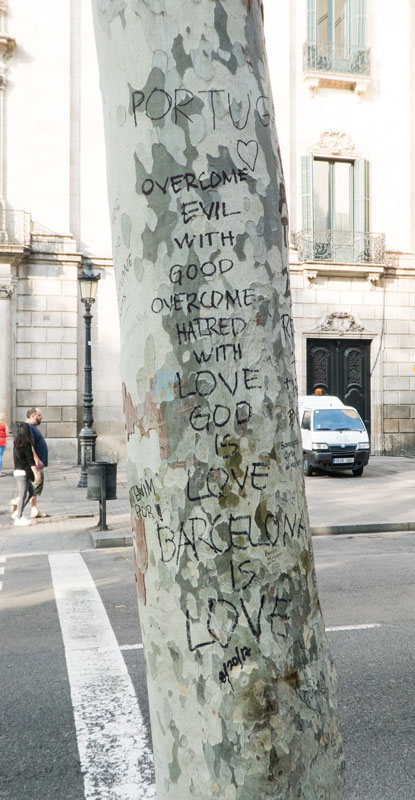 PORTUG
OVERCOME
EVIL
WITH
GOOD
OVERCOME
HATRED
WITH
LOVE
GOD
IS
LOVE
BARCELONA
IS
LOVE